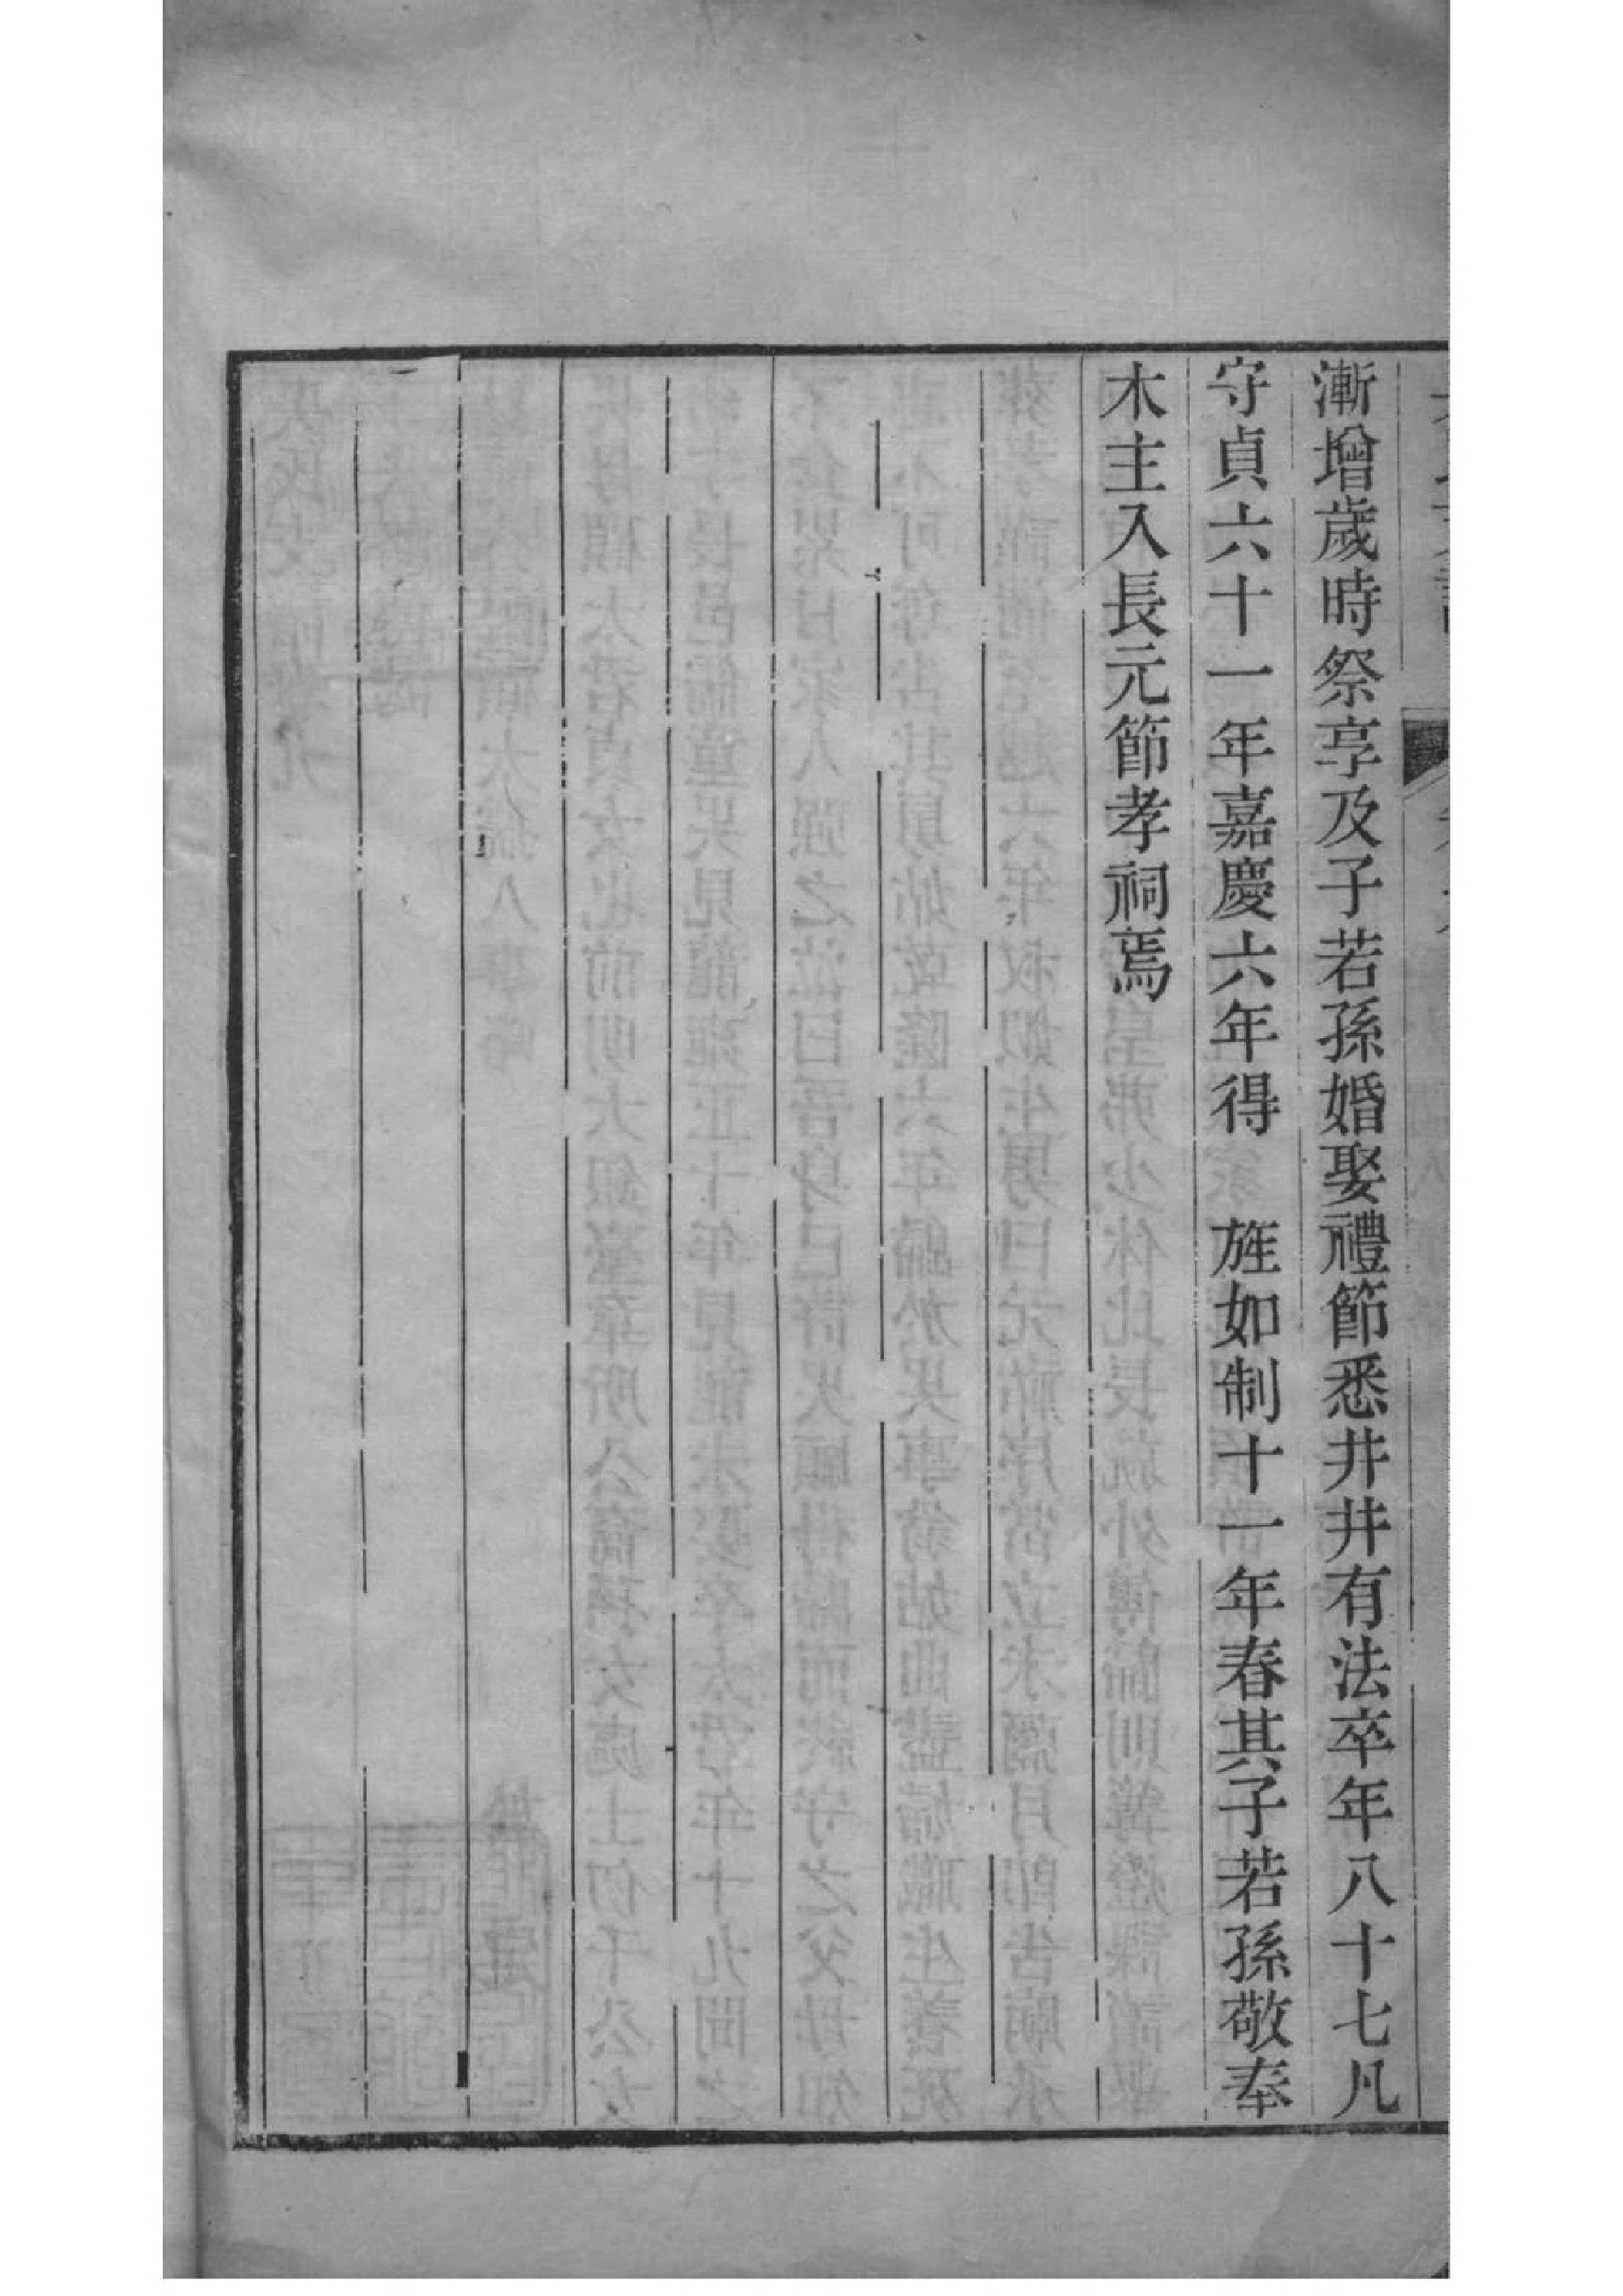 漸增歲時祭享及子若孫婚娶禮節悉井井有法卒年八十七凡
守貞六十一年嘉慶六年得　旌如制十一年春其子若孫敬奉
木主入長元節孝祠焉